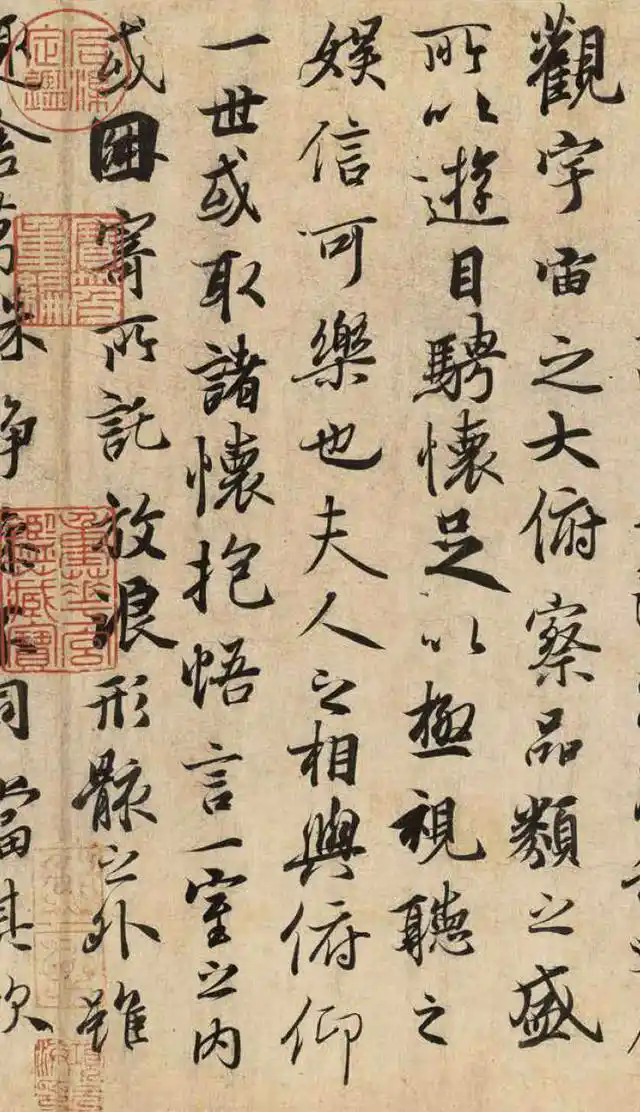 觀宇宙之大俯察品類之盛
所以遊目騁懷足以極視聽之
娛信可樂也夫人之相與俯仰
一世或取諸懷抱悟言一室之內
或因寄所託放浪形骸之外雖
舍萬殊靜 同當其欣